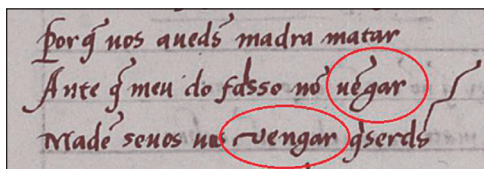 Porq̃ uos aueds̃ madra matar
Ante q̃ meu do fasso nō uẽgar
Madẽ seuos uos vengar q̃serds̃